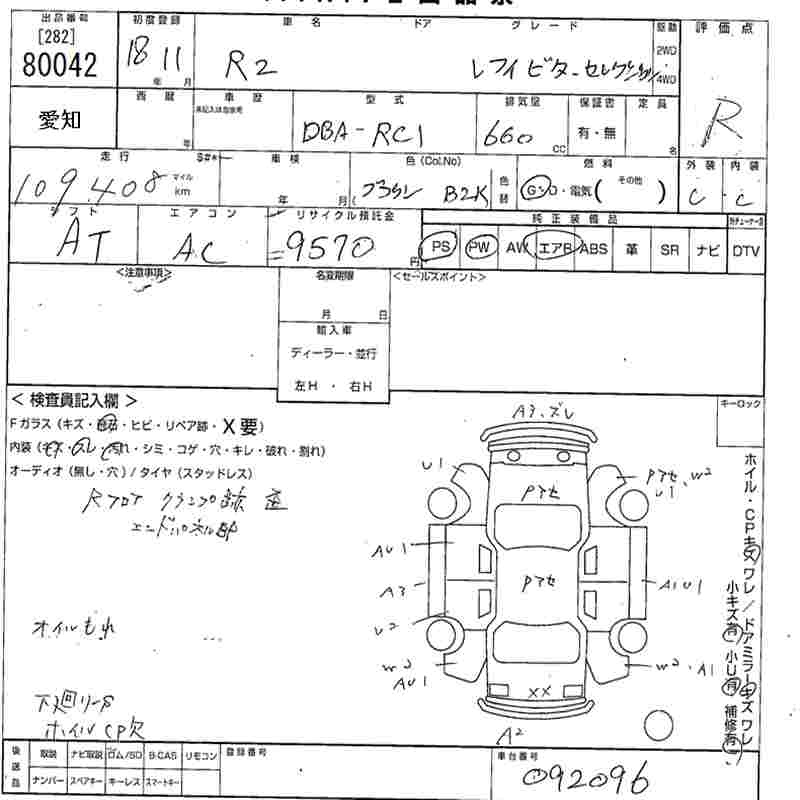 出品番号 初度登録 車名 ドア グレード 駆動 評価点
[282] 80042 18 11 年 月 R2 レフィ ビターセレクション 2WD 4WD R
愛知 西暦 年 車歴 未記入は自家用 型式 DBA-RC1 排気量 660 CC 保証書 有・無 定員 名
走行 109,408 マイル km S#* 車検 年 月 色(Col.No) ブラウン B2K 色替 燃料 G・D・電気( その他 ) 外装 C 内装 C
シフト AT エアコン AC リサイクル預託金 9570 円 純正装備品 PS PW AW エアB ABS 革 SR ナビ DTV
<注意事項> 名変期限 <セールスポイント>
月 日
輸入車
ディーラー・並行
左H ・ 右H
<検査員記入欄> キーロック
Fガラス(キズ・飛石・ヒビ・リペア跡・X要)
内装(キズ・スレ・汚れ・シミ・コゲ・穴・キレ・破れ・割れ)
オーディオ(無し・穴)/タイヤ(スタッドレス)
Rフロア クランプ跡
エンドパネル部
オイルもれ
下廻りサビ
ホイルCP欠
A3、ズレ
U1 Pアセ Pアセ W2 U1
AU1
A3 Pアセ A1U1
U2
W2 AU1 XX W2 A1
A2
ホイル・CPキズワレ/ドアミラーキズワレ
小キズ有 小U有 補修有
後送品 取説 ナビ取説 ロム/SD B-CAS リモコン 登録番号 車台番号
ナンバー スペアキー キーレス スマートキー 092096